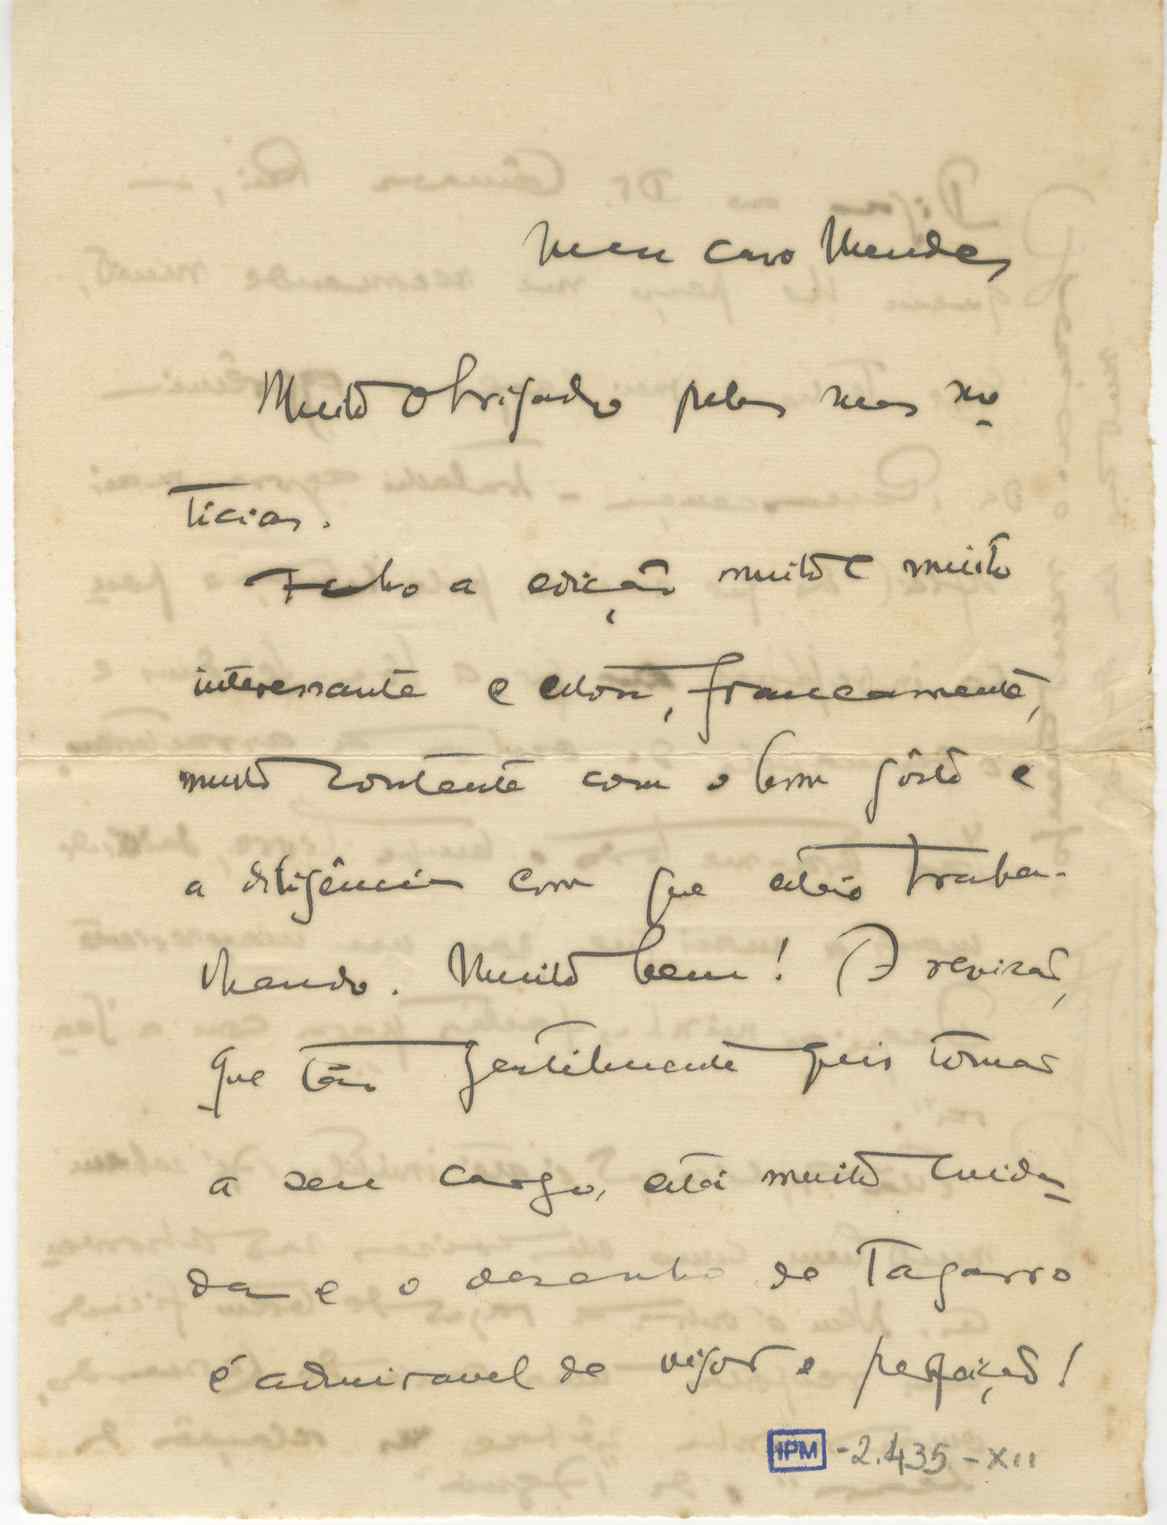 Meu caro Mendes,
Muito obrigado pelas suas no-
tícias.
Acho a edição muito e muito
interessante e estou, francamente,
muito contente com o bom gôsto e
a diligência com que estão traba-
lhando. Muito bem! A revisão,
que tão gentilmente quis tomar
a seu cargo, está muito cuida-
da e o desenho de Tagarro
é admiravel de vigor e perfeição!
IPM -2.435-XII